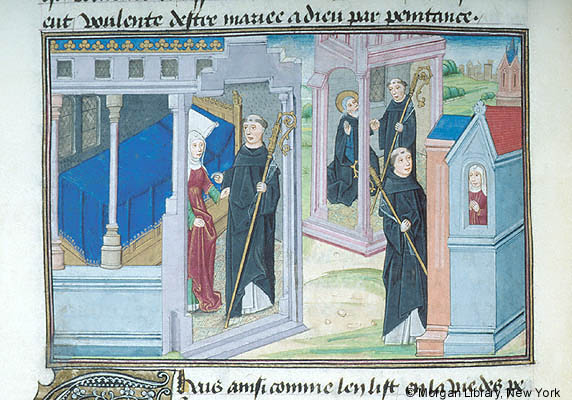 eut voulente destre mariee a dieu par penitance.
Thais ainsi comme len list en la vie des pe
© Morgan Library, New York